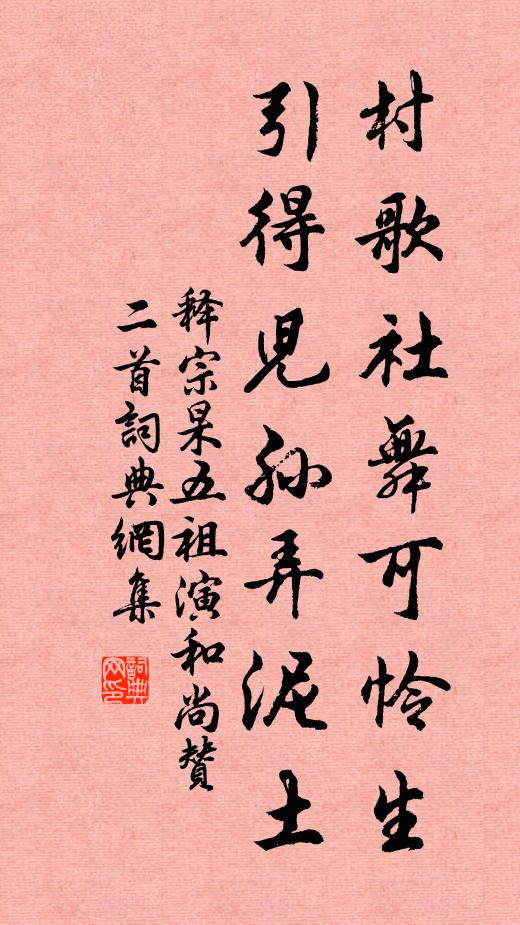 村歌社舞可怜生
引得児孙弄泥土
释宗杲五祖演和尚赞
二首詞典網集
詞典
网印